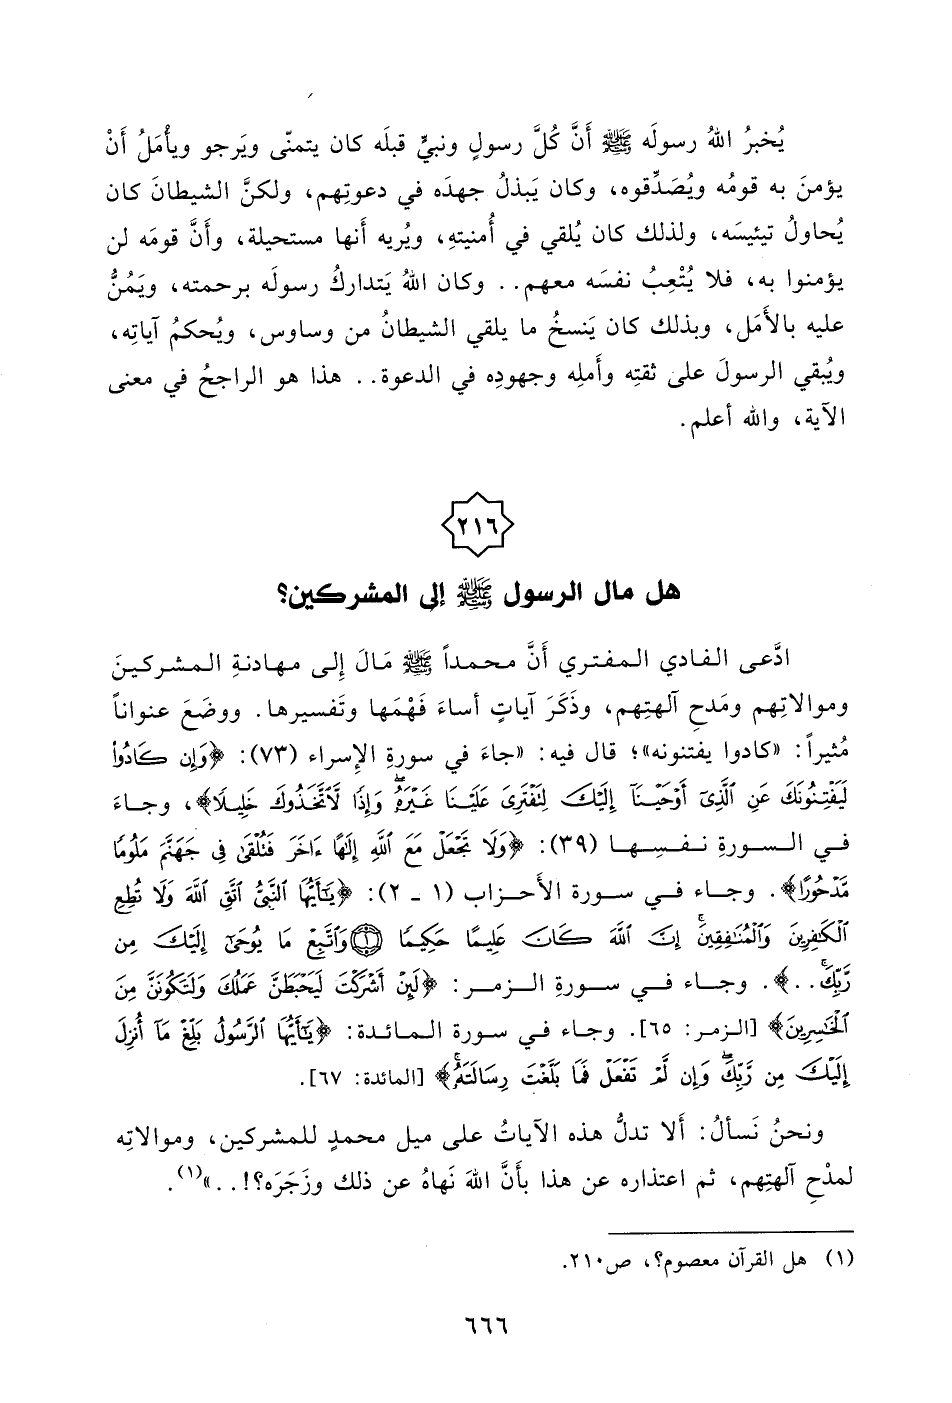 يُخبرُ اللهُ رسولَه ﷺ أَنَّ كُلَّ رسولٍ ونبيٍّ قبلَه كان يتمنّى ويَرجو ويأْمَلُ أَنْ
يؤمنَ به قومُه ويُصَدِّقوه، وكان يَبذلُ جهدَه في دعوتِهم، ولكنَّ الشيطانَ كان
يُحاولُ تيئيسَه، ولذلك كان يُلقي في أُمنيتِهِ، ويُريه أَنها مستحيلة، وأَنَّ قومَه لن
يؤمنوا به، فلا يُتْعِبُ نفسَه معهم.. وكان اللهُ يَتداركُ رسولَه برحمته، ويَمُنُّ
عليه بالأَمَل، وبذلك كان يَنسخُ ما يلقي الشيطانُ من وساوس، ويُحكمُ آياتِه،
ويُبقي الرسولَ على ثقتِه وأَملِه وجهودِه في الدعوة.. هذا هو الراجحُ في معنى
الآية، والله أعلم.
٢١٦
هل مال الرسول ﷺ إلى المشركين؟
ادَّعى الفادي المفتري أَنَّ محمداً ﷺ مَالَ إِلى مهادنةِ المشركينَ
وموالاتِهم ومَدحِ آلهتِهم، وذَكَرَ آياتٍ أساءَ فَهْمَها وتَفسيرها. ووضَعَ عنواناً
مُثيراً: «كادوا يفتنونه»؛ قال فيه: «جاءَ في سورةِ الإِسراء (٧٣): ﴿وَإِن كَادُوا۟
لَيَفْتِنُونَكَ عَنِ ٱلَّذِىٓ أَوْحَيْنَآ إِلَيْكَ لِتَفْتَرِىَ عَلَيْنَا غَيْرَهُۥۖ وَإِذًا لَّٱتَّخَذُوكَ خَلِيلًا﴾، وجـاءَ
فـي الـسـورةِ نـفـسـهـا (٣٩): ﴿وَلَا تَجْعَلْ مَعَ ٱللَّهِ إِلَٰهًا ءَاخَرَ فَتُلْقَىٰ فِى جَهَنَّمَ مَلُومًا
مَّدْحُورًا﴾. وجـاء فـي سـورة الأَحـزاب (١ ـ ٢): ﴿يَٰٓأَيُّهَا ٱلنَّبِىُّ ٱتَّقِ ٱللَّهَ وَلَا تُطِعِ
ٱلْكَٰفِرِينَ وَٱلْمُنَٰفِقِينَۚ إِنَّ ٱللَّهَ كَانَ عَلِيمًا حَكِيمًا ۝١ وَٱتَّبِعْ مَا يُوحَىٰٓ إِلَيْكَ مِن
رَّبِّكَۚ..﴾. وجـاء فـي سـورةِ الـزمـر: ﴿لَئِنْ أَشْرَكْتَ لَيَحْبَطَنَّ عَمَلُكَ وَلَتَكُونَنَّ مِنَ
ٱلْخَٰسِرِينَ﴾ [الزمر: ٦٥]. وجاء في سورة المائدة: ﴿يَٰٓأَيُّهَا ٱلرَّسُولُ بَلِّغْ مَآ أُنزِلَ
إِلَيْكَ مِن رَّبِّكَۖ وَإِن لَّمْ تَفْعَلْ فَمَا بَلَّغْتَ رِسَالَتَهُۥۚ﴾ [المائدة: ٦٧].
ونحنُ نَسأَلُ: أَلا تدلُّ هذه الآياتُ على ميل محمدٍ للمشركين، وموالاتِه
لمدْحِ آلهتِهم، ثم اعتذاره عن هذا بأَنَّ اللهَ نَهاهُ عن ذلك وزَجَرَه؟!..»(١).
(١) هل القرآن معصوم؟، ص٢١٠.
٦٦٦